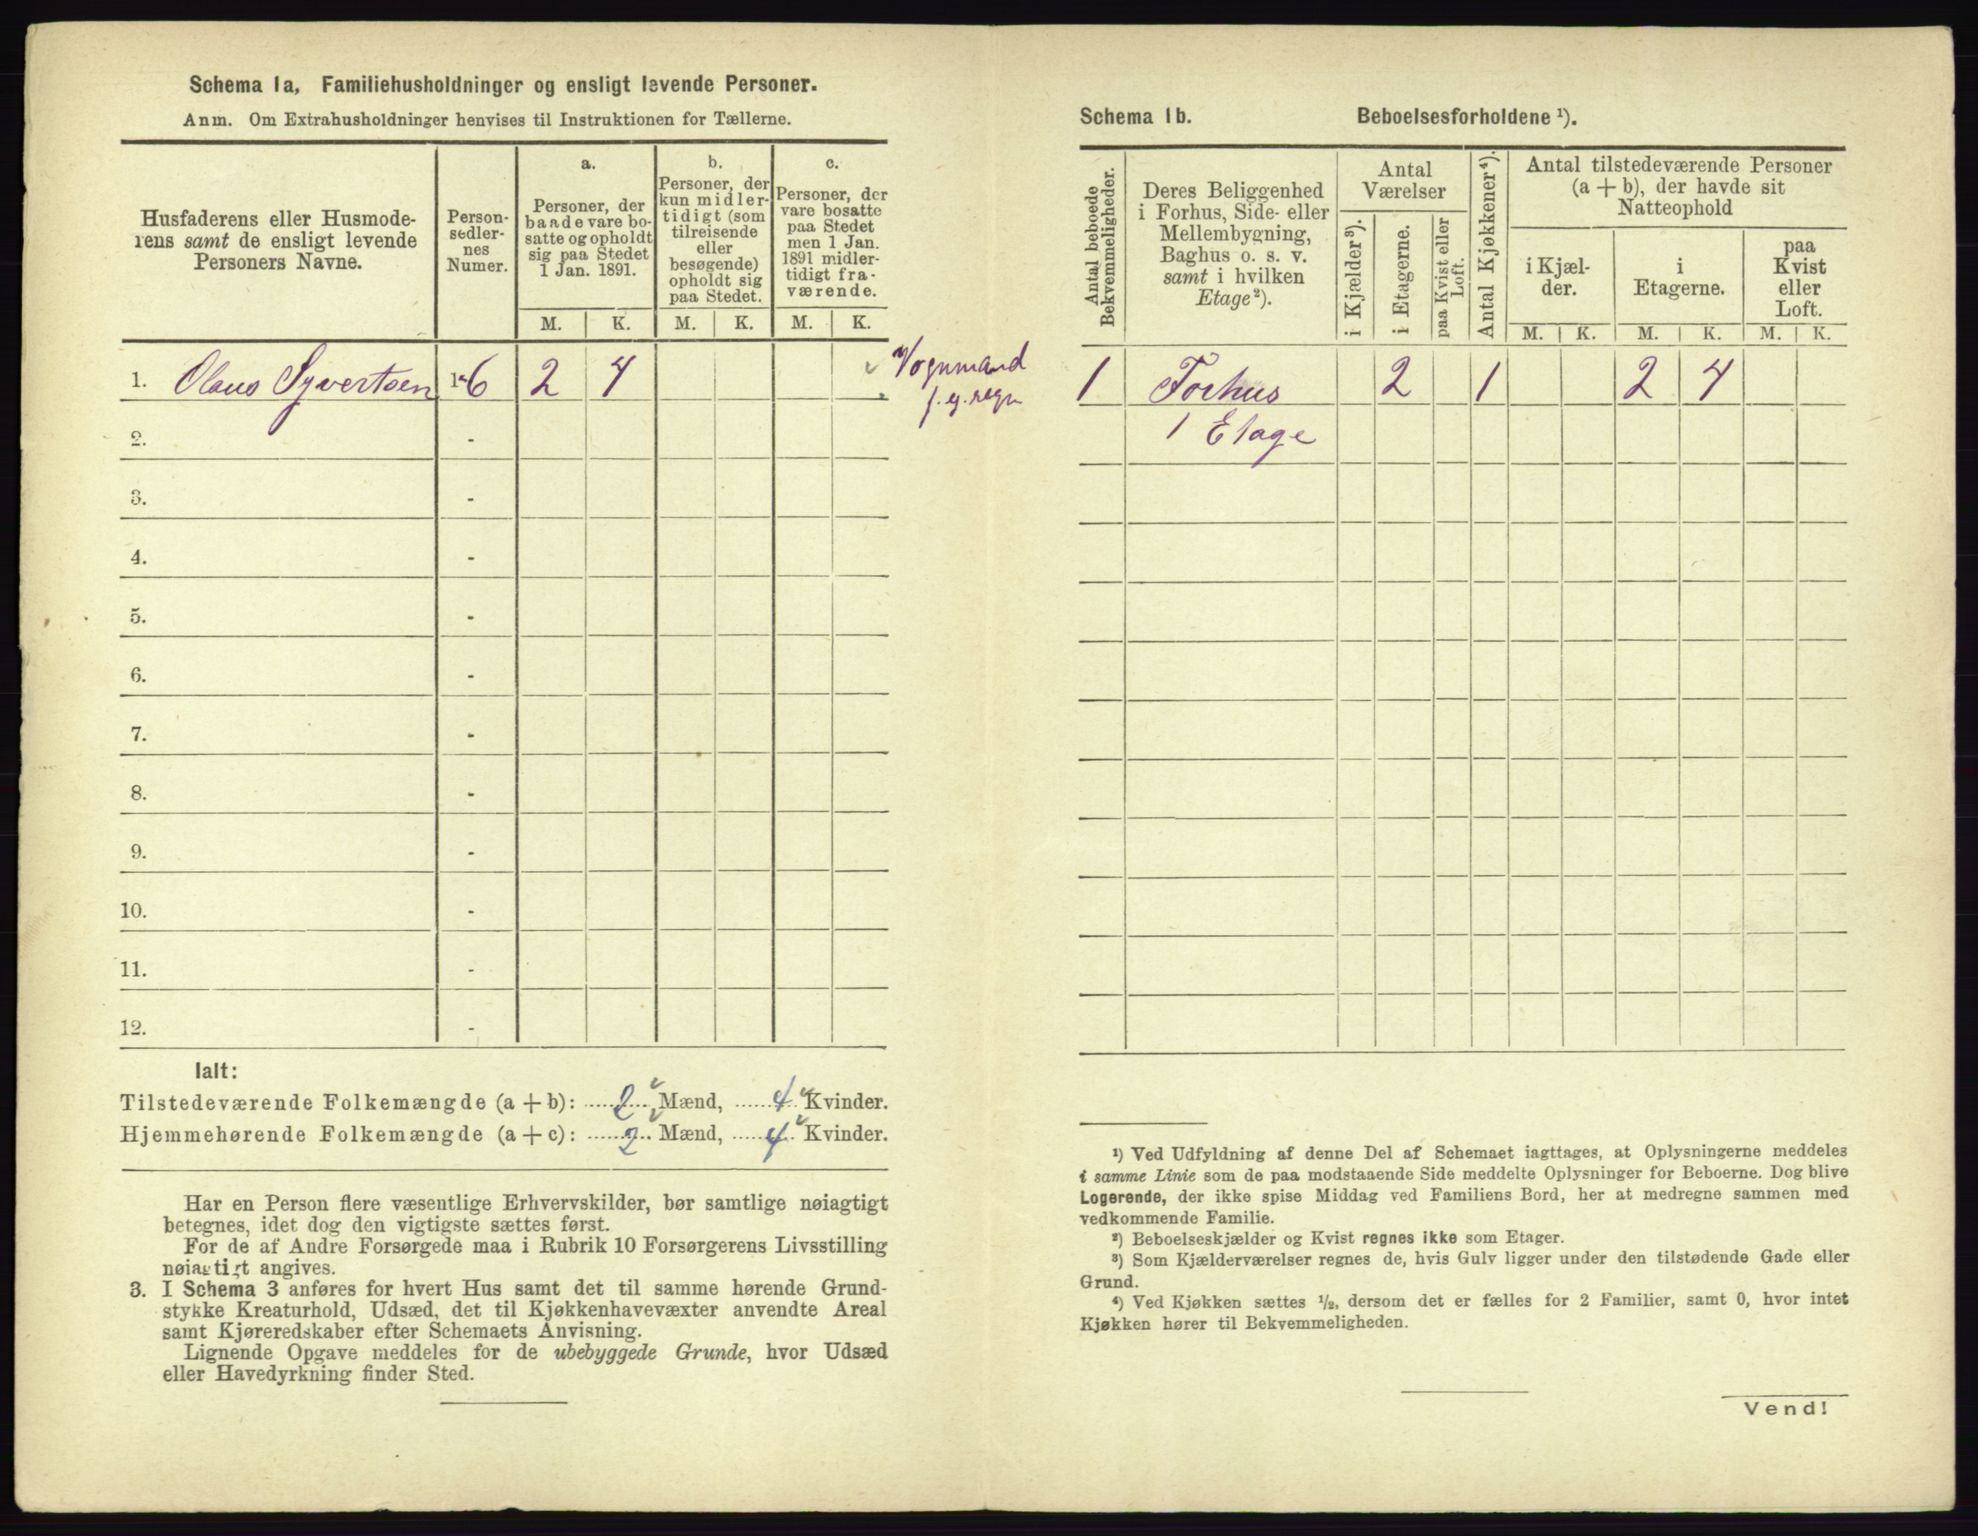 Schema 1a, Familiehusholdninger og ensligt levende Personer.
Anm. Om Extrahusholdninger henvises til Instruktionen for Tællerne.
Husfaderens eller Husmode-
rens samt de ensligt levende
Personers Navne.
Person-
sedler-
nes
Numer.
a.
Personer, der
baade vare bo-
satte og opholdt
sig paa Stedet
1 Jan. 1891.
b.
Personer, der
kun midler-
tidigt (som
tilreisende
eller
besøgende)
opholdt sig
paa Stedet.
c.
Personer, der
vare bosatte
paa Stedet
men 1 Jan.
1891 midler-
tidigt fra-
værende.
M. K. M. K. M. K.
1. Olaus Syvertsen 1-6 2 4
Vognmand
f. eg. regn
2. -
3. -
4. -
5. -
6. -
7. -
8. -
9. -
10. -
11. -
12. -
Ialt:
Tilstedeværende Folkemængde (a + b): 2 Mænd, 4 Kvinder.
Hjemmehørende Folkemængde (a + c): 2 Mænd, 4 Kvinder.
Har en Person flere væsentlige Erhvervskilder, bør samtlige nøiagtigt
betegnes, idet dog den vigtigste sættes først.
For de af Andre Forsørgede maa i Rubrik 10 Forsørgerens Livsstilling
nøiagtigt angives.
3. I Schema 3 anføres for hvert Hus samt det til samme hørende Grund-
stykke Kreaturhold, Udsæd, det til Kjøkkenhavevæxter anvendte Areal
samt Kjøreredskaber efter Schemaets Anvisning.
Lignende Opgave meddeles for de ubebyggede Grunde, hvor Udsæd
eller Havedyrkning finder Sted.
Schema 1b. Beboelsesforholdene ¹).
Antal beboede
Bekvemmeligheder.
Deres Beliggenhed
i Forhus, Side- eller
Mellembygning,
Baghus o. s. v.
samt i hvilken
Etage²).
Antal
Værelser
i Kjælder³).
i Etagerne.
paa Kvist eller
Loft.
Antal Kjøkkener⁴).
Antal tilstedeværende Personer
(a + b), der havde sit
Natteophold
i Kjæl-
der.
i
Etagerne.
paa
Kvist
eller
Loft.
M. K. M. K. M. K.
1 Forhus 2 1 2 4
1 Etage
¹) Ved Udfyldning af denne Del af Schemaet iagttages, at Oplysningerne meddeles
i samme Linie som de paa modstaaende Side meddelte Oplysninger for Beboerne. Dog blive
Logerende, der ikke spise Middag ved Familiens Bord, her at medregne sammen med
vedkommende Familie.
²) Beboelseskjælder og Kvist regnes ikke som Etager.
³) Som Kjælderværelser regnes de, hvis Gulv ligger under den tilstødende Gade eller
Grund.
⁴) Ved Kjøkken sættes ½, dersom det er fælles for 2 Familier, samt 0, hvor intet
Kjøkken hører til Bekvemmeligheden.
Vend!